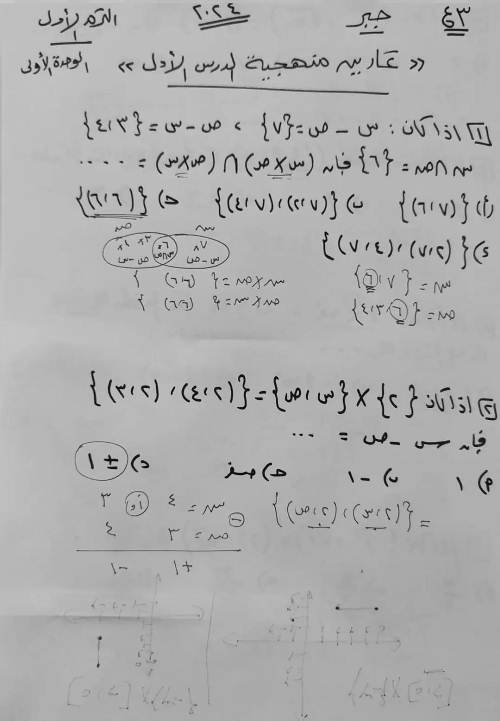 ع٣ جبر ٢٠٢٤ الترم الأول
« تمارين منهجية الدرس الأول » الوحدة الأولى
١ اذا كان : س - ص = {٧} ، ص - س = {٤،٣}
س ∩ ص = {٦} فإن (س × ص) ∩ (ص × س) = ....
أ) {(٧،٦)} ب) {(٢،٧)،(٧،٤)} ج) {(٦،٦)}
د) {(٧،٢)،(٧،٤)}
س ص
٧. ٦. ٣. ٤.
س - ص س ∩ ص ص - س
س = {٧،٦}
ص = {٤،٣،٦}
س × ص = { (٦،٦) }
ص × س = { (٦،٦) }
٢ اذا كان {٢} × {س،ص} = {(٤،٢)،(٣،٢)}
فإن س - ص = ...
أ) ١ ب) -١ ج) صفر د) ± ١
= {(س،٢)،(ص،٢)}
س = ٤ أو ٣
ص = ٣ ٤
+١ -١